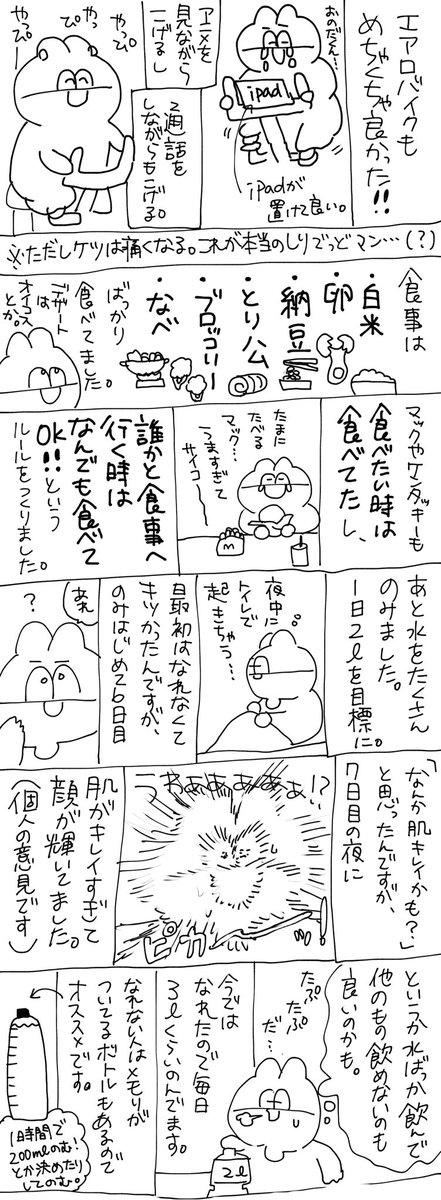 エアロバイクも
めちゃくちゃ良かった!!
おのだくん…
ipad
ipadが
置けて良い。
アニメを
見ながら
こげるし
通話を
しながらもこげる。
やっぴ
やっぴー
やっぴー
※ただしケツは痛くなる。これが本当のしりでっどマン…(?)
食事は
・白米
・卵
・納豆
・とりハム
・ブロッコリー
・なべ
ばっかり
食べてました。
デザート
は
オイコス
とか。
マックやケンタッキーも
食べたい時は
食べてたし、
たまに
たべる
マック…
うますぎて
サイコー
M
誰かと食事へ
行く時は
なんでも食べて
OK!!という
ルールをつくりました。
あと水をたくさん
のみました。
1日2ℓを目標に。
夜中に
トイレで
起きちゃう…
最初はなれなくて
キツかったんですが、
のみはじめて6日目
あれ
?
「なんか肌キレイかも?」
と思ったんですが、
7日目の夜に
うわあああああぁ!?
ピカ
ーッ!!
肌がキレイすぎて
顔が輝いてました。
(個人の意見です)
というか水ばっか飲んで
他のもの飲めないのも
良いのかも。
たぷ
たぷ
だ…
2ℓ
今では
なれたので毎日
3ℓくらいのんでます。
なれない人はメモリが
ついてるボトルもあるので
オススメです。
1時間で
200mlのむ!
とか決めたり
してのむ。